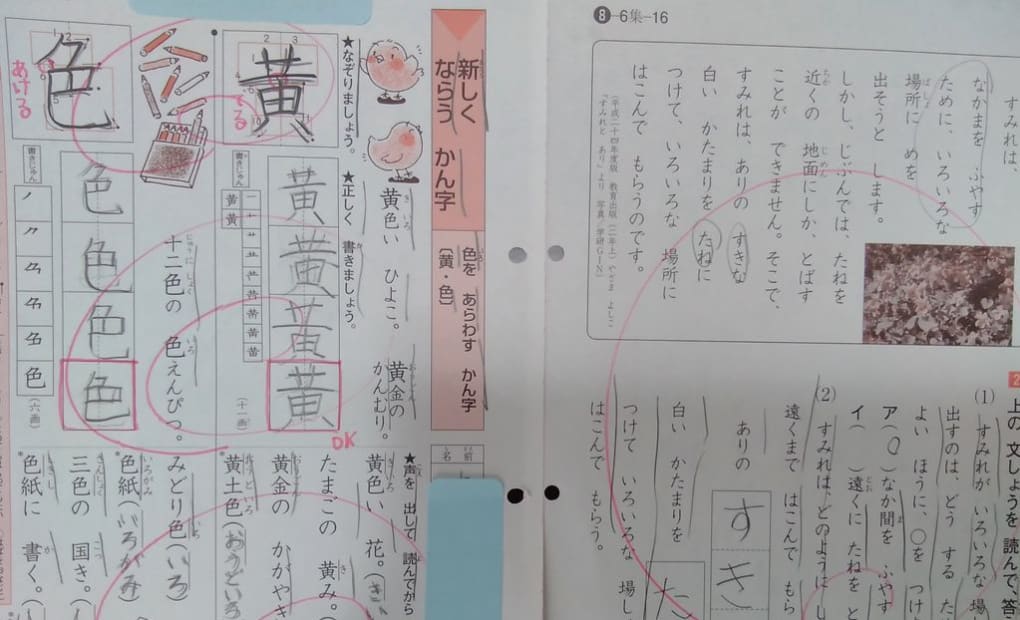 ❽-6集-16
すみれは、
なかまを ふやす
ために、いろいろな
場所に めを
出そうと します。
しかし、じぶんでは、たねを
近くの 地面にしか、とばす
ことが できません。そこで、
すみれは、ありの すきな
白い かたまりを たねに
つけて、いろいろな 場所に
はこんで もらうのです。
2
上の 文しょうを 読んで、答
(1) すみれが いろいろな 場し
出すのは、どう する た
よい ほうに、○を つけ
ア(○)なか間を ふやす
イ( )遠くに たねを と
(2) すみれは、どのように し
遠くまで はこんで もら
ありの
すき
白い かたまりを
た
つけて いろいろな 場し
はこんで もらう。
新しく ならう かん字
色を あらわす かん字
(黄・色)
名前
★なぞりましょう。
黄
でる
色
あける
★正しく 書きましょう。
黄色い ひよこ。
黄金の かんむり。
黄
黄
黄
黄
OK
書きじゅん
(十一画)
十二色の 色えんぴつ。
色
色
色
色
書きじゅん
(六画)
★声を 出して 読んでから
黄色い 花。(き
たまごの 黄み。
黄金の かがやき
黄土色(おうどいろ
みどり色(いろ)
色紙(いろがみ)
三色の 国き。(
色紙に 書く。(